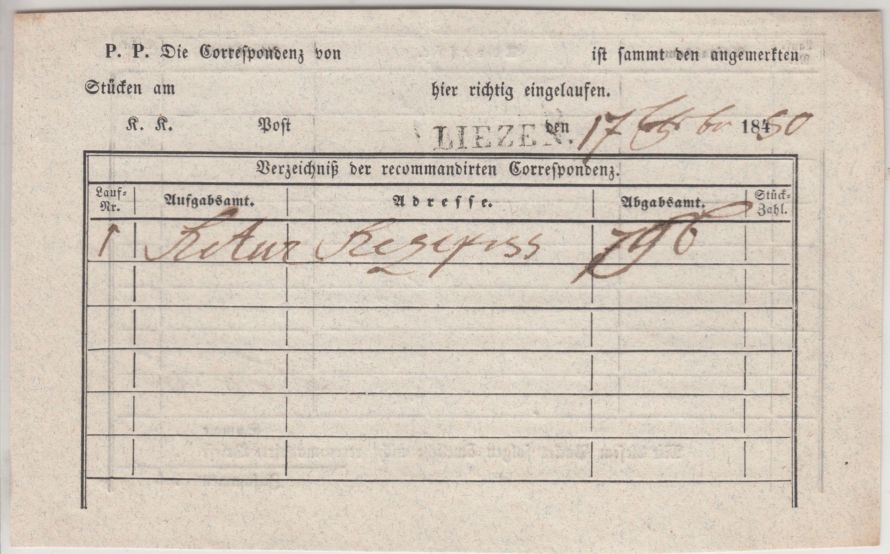 P. P. Die Correspondenz von ist sammt den angemerkten
Stücken am hier richtig eingelaufen.
K. K. Post LIEZEN. den 17 184 50
Verzeichniß der recommandirten Correspondenz.
Lauf-Nr. Aufgabsamt. Adresse. Abgabsamt. Stück-Zahl.
1 Retour Recepiss 796